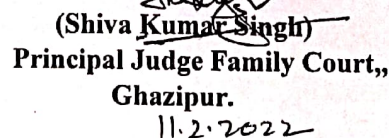 (Shiva Kumar Singh)
Principal Judge Family Court,,
Ghazipur.
11.2.2022